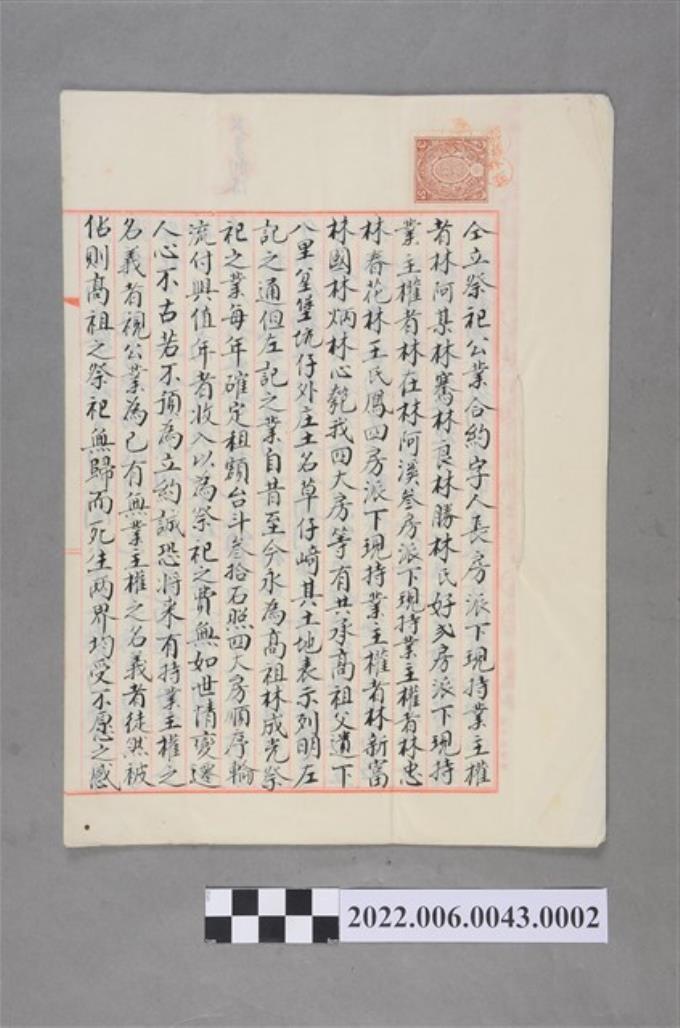 仝立祭祀公業合約字人長房派下現持業主權
者林阿某林騫林良林勝林氏好弍房派下現持
業主權者林在林阿溪叁房派下現持業主權者林忠
林春花林王氏鳳四房派下現持業主權者林新富
林國林炳林心匏我四大房等有共承高祖父遺下
八里坌堡坑仔外庄土名草仔崎其土地表示列明左
記之通但左記之業自昔至今永為高祖林成光祭
祀之業每年確定租額台斗叁拾石照四大房順序輪
流付與值年者收入以為祭祀之費無如世情變遷
人心不古若不預為立約誠恐將來有持業主權之
名義者視公業為己有無業主權之名義者徒然被
佔則高祖之祭祀無歸而死生两界均受不愿之感
2022.006.0043.0002